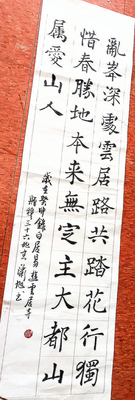 亂峯深處雲居路共踏花行獨
惜春勝地本来無定主大都山
屬愛山人
錄白居易遊雲居寺
贈穆三十六地主